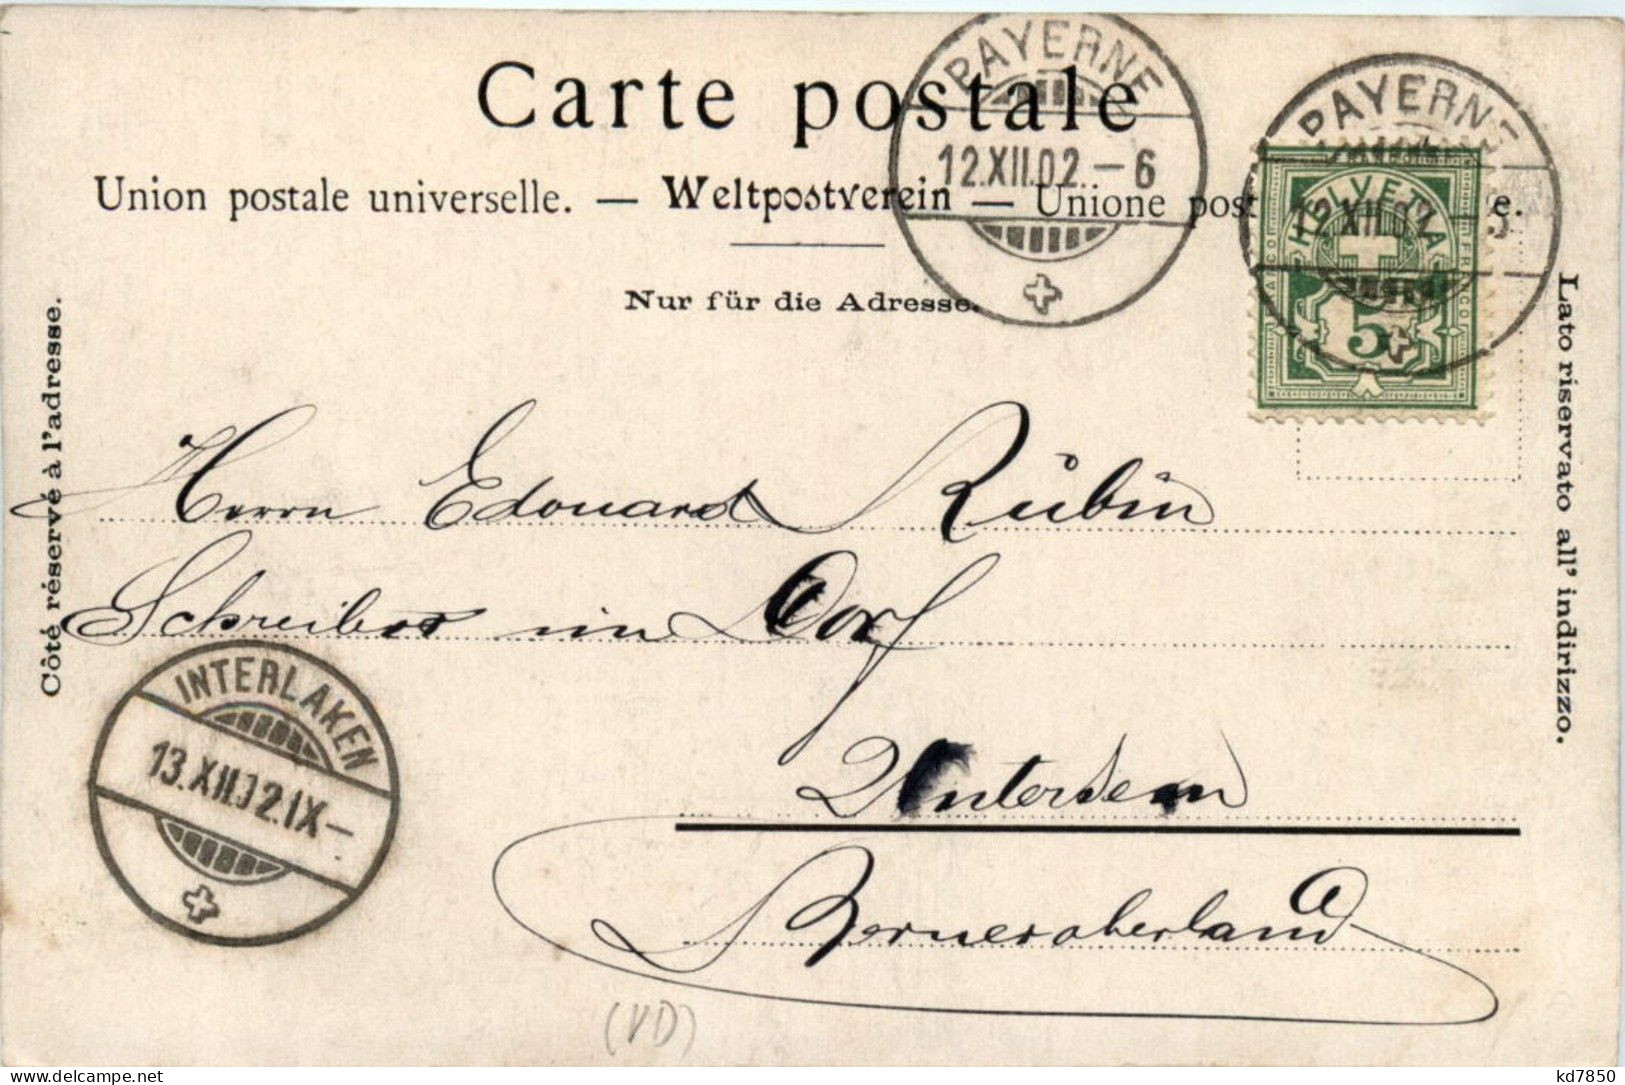 Carte postale
Union postale universelle. — Weltpostverein — Unione post e.
Nur für die Adresse.
Côté réservé à l'adresse.
Lato riservato all' indirizzo.
PAYERNE
12.XII.02.–6
PAYERNE
12.XII.02
HELVETIA
FRANCO
5
Herrn Edouard Rübin
Schreiber im Dorf
Unterseen
Berneroberland
INTERLAKEN
13.XII.02.IX–
(VD)
kd7850